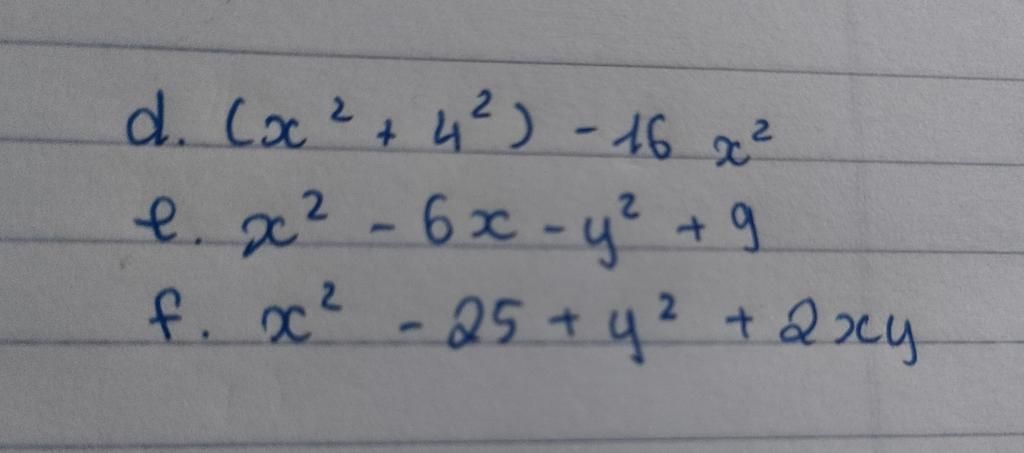 d. (x² + 4²) - 16 x²
e. x² - 6x - y² + 9
f. x² - 25 + y² + 2xy